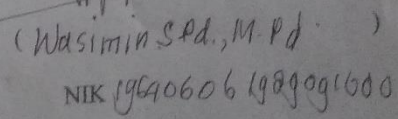 (Wasimin S.Pd., M.Pd. )
NIK 19640606 1989091600